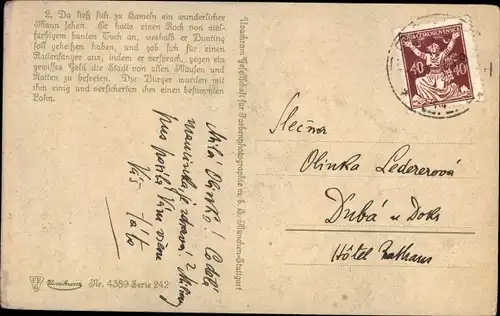 2. Da ließ sich zu Hameln ein wunderlicher
Mann sehen. Er hatte einen Rock von viel-
farbigem bunten Tuch an, weshalb er Bunting
soll geheißen haben, und gab sich für einen
Rattenfänger aus, indem er versprach, gegen ein
gewisses Geld die Stadt von allen Mäusen und
Ratten zu befreien. Die Bürger wurden mit
ihm einig und versicherten ihm einen bestimmten
Lohn.
Milá Olinko! Co dělá
maminka, je zdravá?
Váš táta
Nr. 4389 Serie 242
Uvachrom Gesellschaft für Farbenphotographie m. b. H. München-Stuttgart
ČESKOSLOVENSKÁ
40 40
Slečna
Olinka Ledererová
Dubá u Doks
Hôtel Rathaus